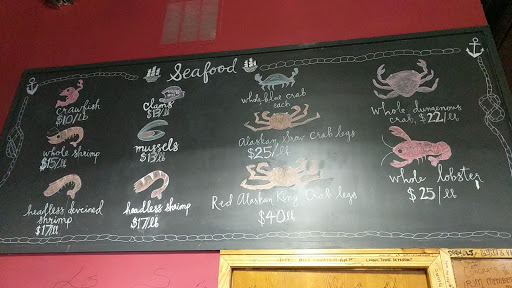 Seafood
crawfish
$10/lb
clams
$13/lb
whole blue crab
each
whole dungenous
crab, $22/lb
whole shrimp
$15/lb
mussels
$13/lb
Alaskan Snow Crab legs
$25/lb
whole lobster
$25/lb
headless deveined
shrimp
$17/lb
headless shrimp
$17/lb
Red Alaskan King Crab legs
$40lb